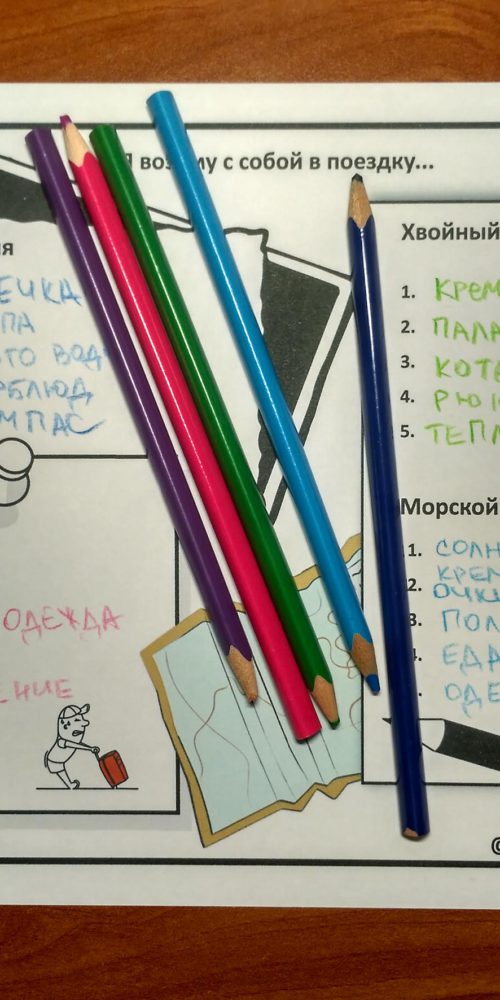 Я возьму с собой в поездку...
ия
ЕЧКА
ПА
ТО ВОД
РБЛЮД
МПАС
ОДЕЖДА
ЕНИЕ
Хвойный
1. КРЕМ
2. ПАЛА
3. КОТЕ
4. РЮК
5. ТЕПЛ
Морской
1. СОЛН
КРЕМ
2. ОЧКИ
3. ПОЛ
4. ЕДА
ОДЕ
©